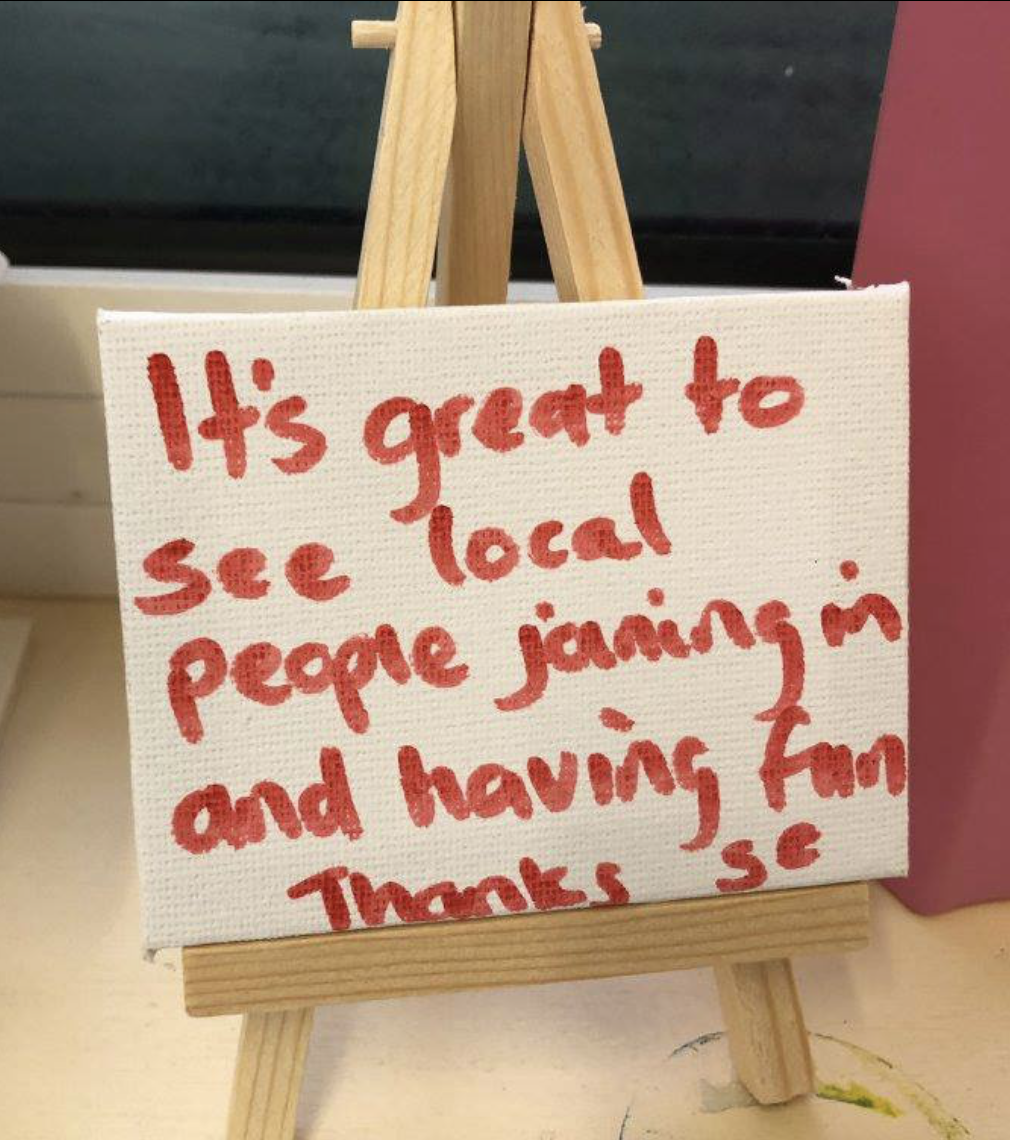 It's great to
see local
people joining in
and having fun
Thanks se